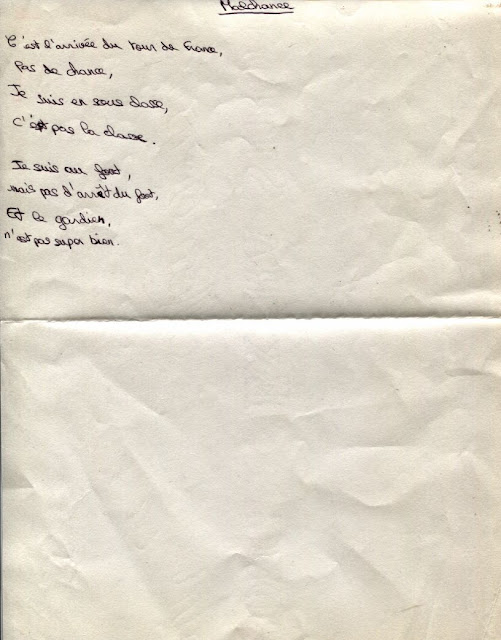 Malchance
C'est l'arrivée du tour de France,
Pas de chance,
Je suis en sous classe,
C'est pas la classe.
Je suis au foot,
mais pas d'arrêt du foot,
Et le gardien,
n'est pas super bien.